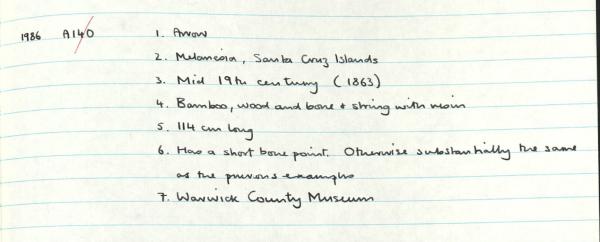 1986 A140 1. Arrow
2. Melanesia, Santa Cruz Islands
3. Mid 19th century (1863)
4. Bamboo, wood and bone + string with resin
5. 114 cm long
6. Has a short bone point. Otherwise substantially the same
as the previous example
7. Warwick County Museum